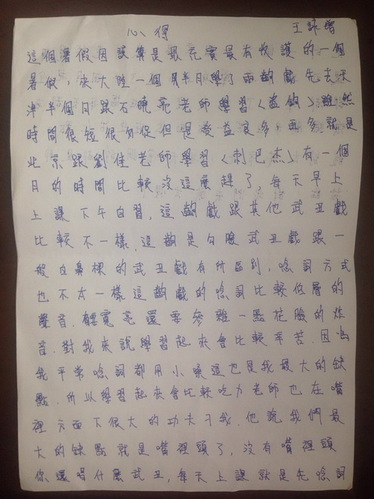 心得 王詠雪
這個暑假因該算是最充實最有收護的一個
暑假,來大陸一個月半日學了兩齣戲先去天
津半個月跟石曉亮老師學習《盜鉤》雖然
時間很短很匆促但是受益良多,再多就是
北京跟劉佳老師學習《刺巴杰》有一個
月的時間比較沒這麼趕了,每天早上
上課下午自習,這齣戲跟其他武丑戲
比較不一樣,這齣是白臉武丑戲跟一
般白鼻樑的武丑戲有所區別,唸詞方式
也不太一樣這齣戲的唸詞比較低層的
聲音,輕電毛還要參雜一些花臉的炸
音,對我來說學習起來會比較辛苦,因為
我平常唸詞都用小嗓這也是我最大的缺
點,所以學習起來會比較吃力老師也在嘴
裡方面下很大的功夫予我,他說我們最
大的缺點就是嘴裡頭了,沒有嘴裡頭
你還唱什麼武丑,每天上課就是先唸詞